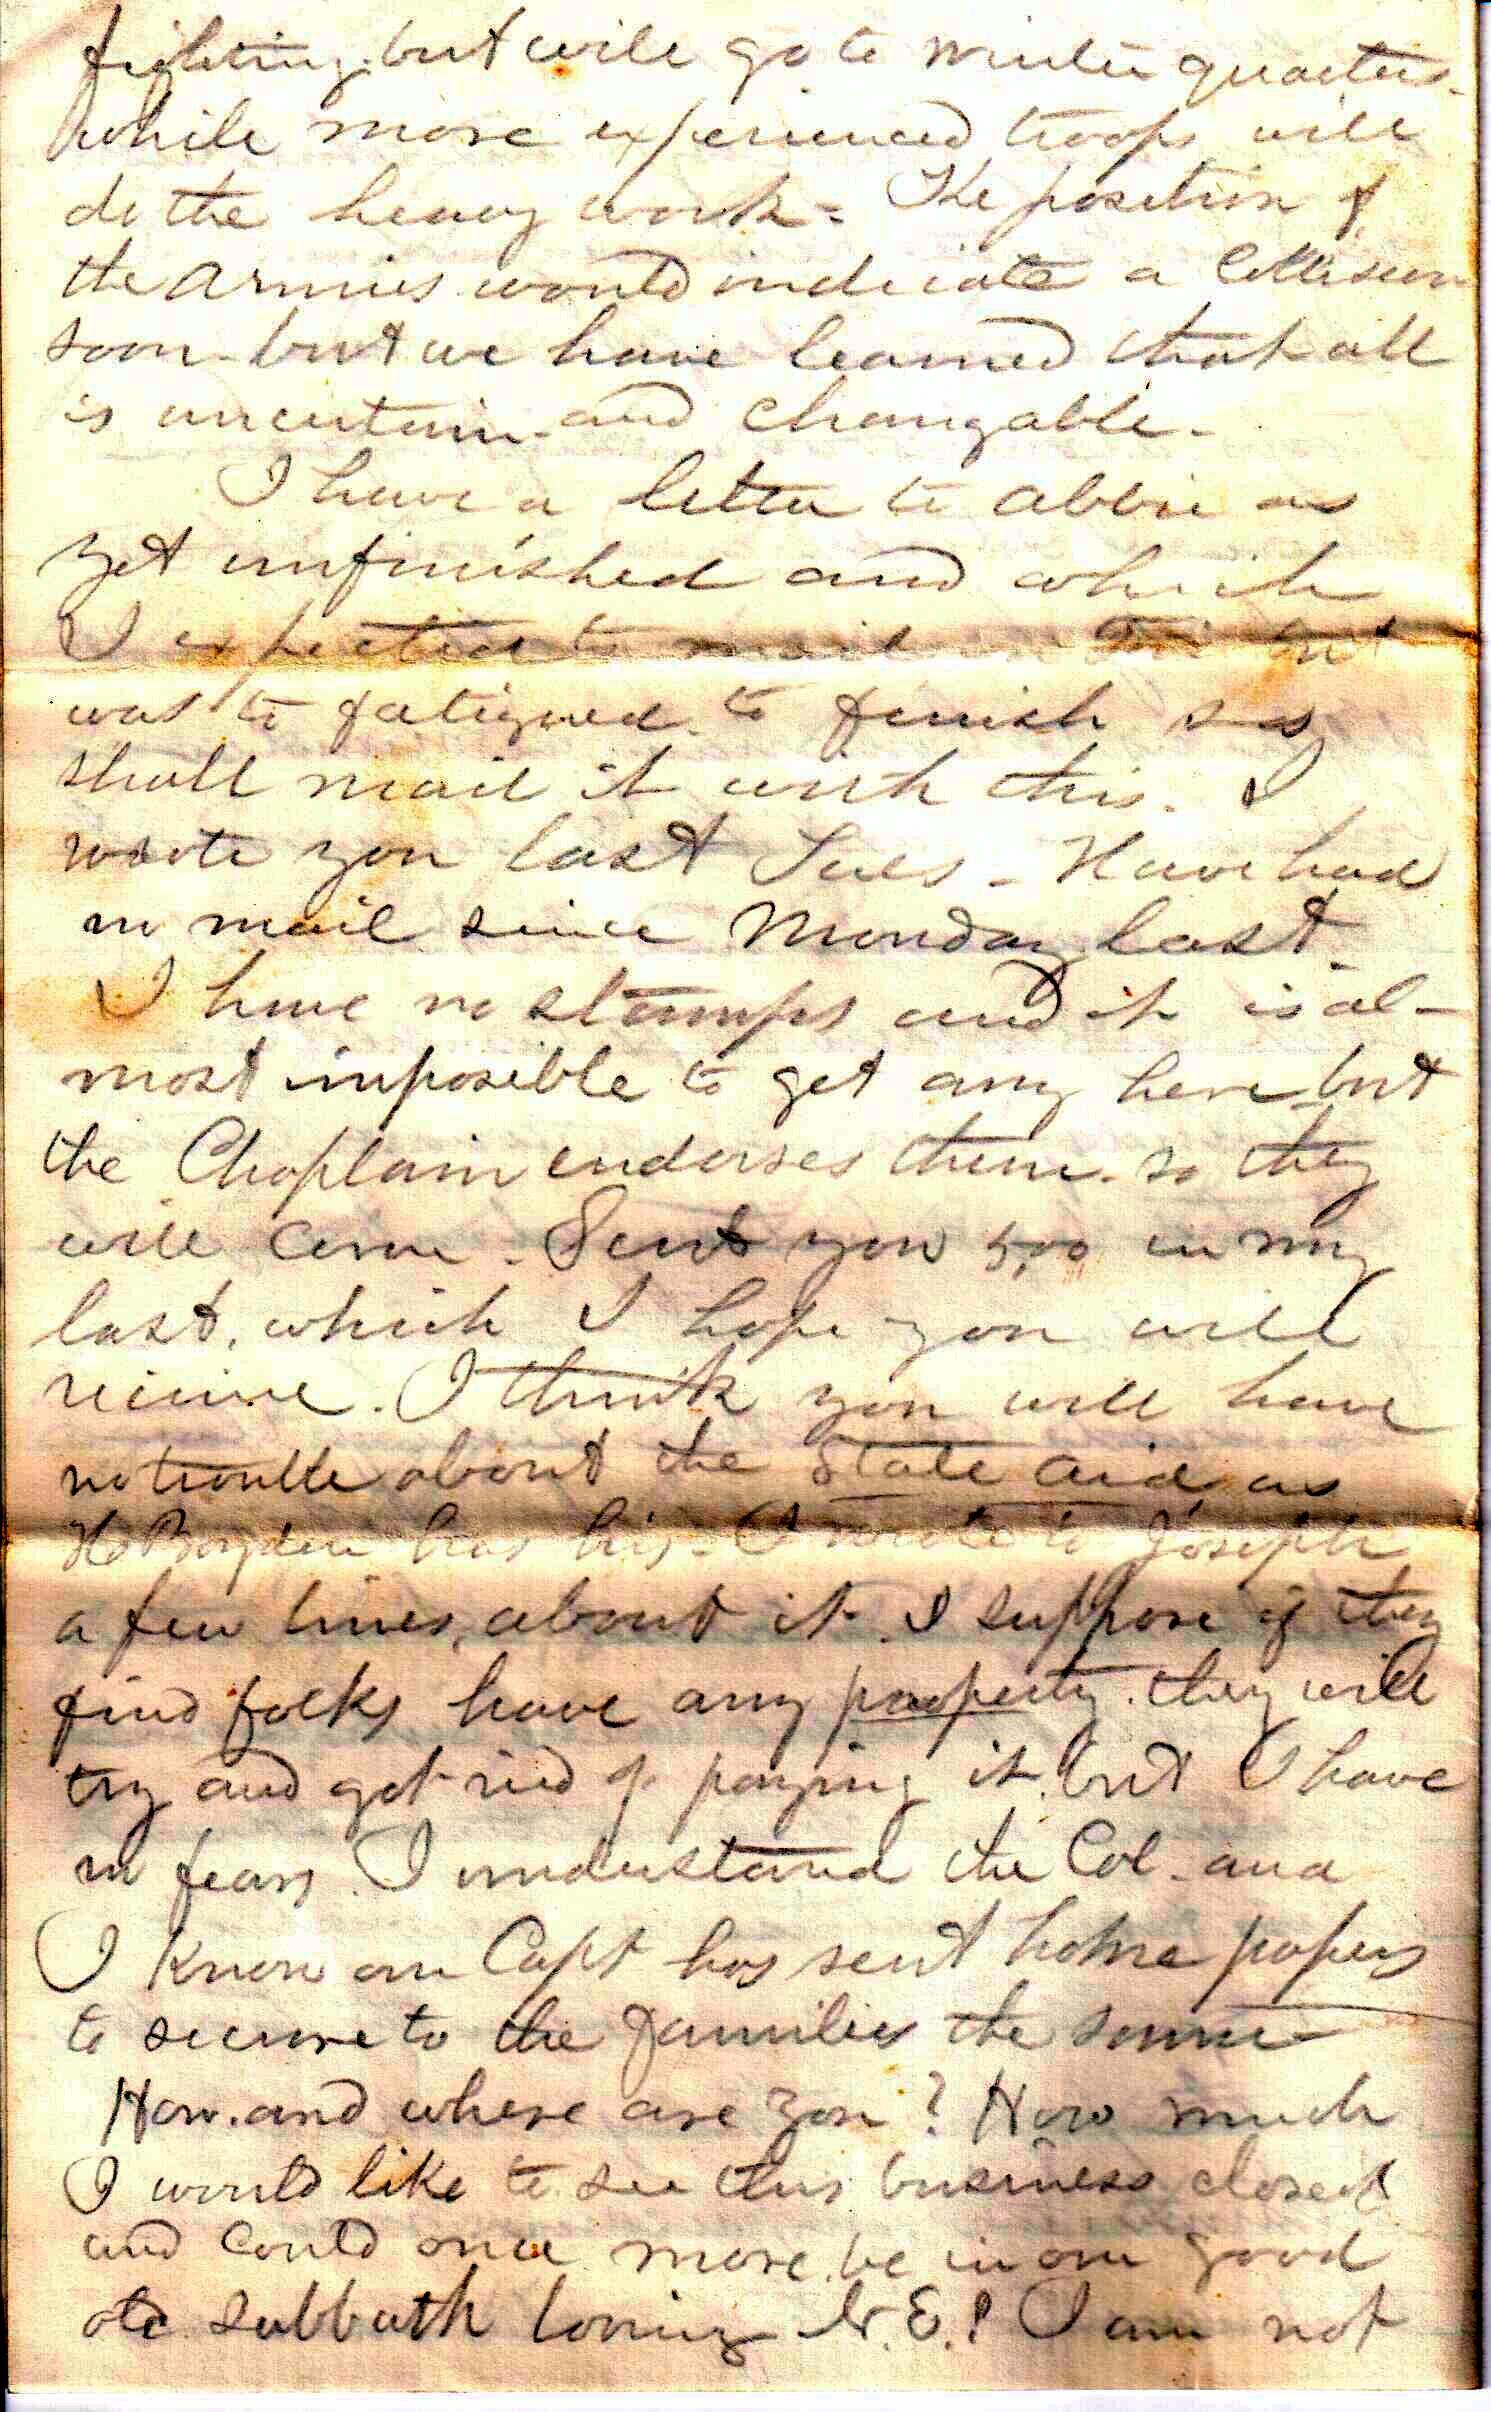 fighting. but will go to winter quarters.
while more experienced troops will
do the heavy work - The position of
the armies would indicate a Collision
soon - but we have learned that all
is uncertain - and Changable -
I have a letter to Abbie as
yet unfinished and which
I expected to mail but
was to fatigued to finish so
shall mail it with this. I
wrote you last Tues - Have had
no mail since Monday last.
I have no stamps and it is al-
most imposible to get any here but
the Chaplain endorses them - so they
will come - Sent you 5,00 in my
last, which I hope you will
recieve. I think you will have
no trouble about the State aid as
H Boyden has his - I wrote to Joseph
a few lines, about it. I suppose if they
find folks have any property. they will
try and get rid of paying it. but I have
no fears. I understand the Col - and
I know our Capt has sent home papers
to secure to the families the same -
How. and where are you? How much
I would like to see this business closed
and could once more be in our good
old sabbath loving N.E.! I am not